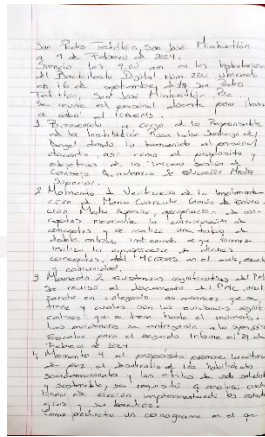 San Pedro Teutila, San José Miahuatlán
a 9 de Febrero de 2024,
Siendo las 9:00 am en las instalaciones
del Bachillerato Digital num. 220 ubicado
en 16 de septiembre San Pedro
San José Miahuatlán Pue.
se reune el personal docente para llevar
a cabo el
1 Bienvenida a cargo de la Responsable
de la Institución Rosa Luisa Santiago
Angel dando la bienvenida al personal
docente, así como el propósito y
objetivos de la Tercera Sesión de
Consejo Académico de Educación Media
Superior.
2 Momento 1 Verificación de la implementa-
ción de Marco Curricular Común de Educa-
ción Media Superior, apropiación de con-
ceptos mediante la
conceptos y se realiza una tabla de
doble entrada indicando que forma
implica la apropiación de dichos
conceptos, del MCCEMS en el aula, escuela
y comunidad.
3 Momento 2 Evidencias significativas del PMC
Se revisa el documento del PMC, anali-
zando en colegiado los avances que se
tiene y cuales son las evidencias signifi-
cativas que se tiene hasta el momento.
Las evidencias se entregarán a la supervisión
Escolar para el segundo informe el 29 de
Febrero de 2024
4 Momento 4 el propósito promover la cultura
de paz, el desarrollo de las habilidades
socioemocionales y los estilos de vida saludable
y sostenible, se requisitó y analizó cada
línea de acción, implementando las estrate-
gias y sus beneficios.
Como producto un cronograma en el que